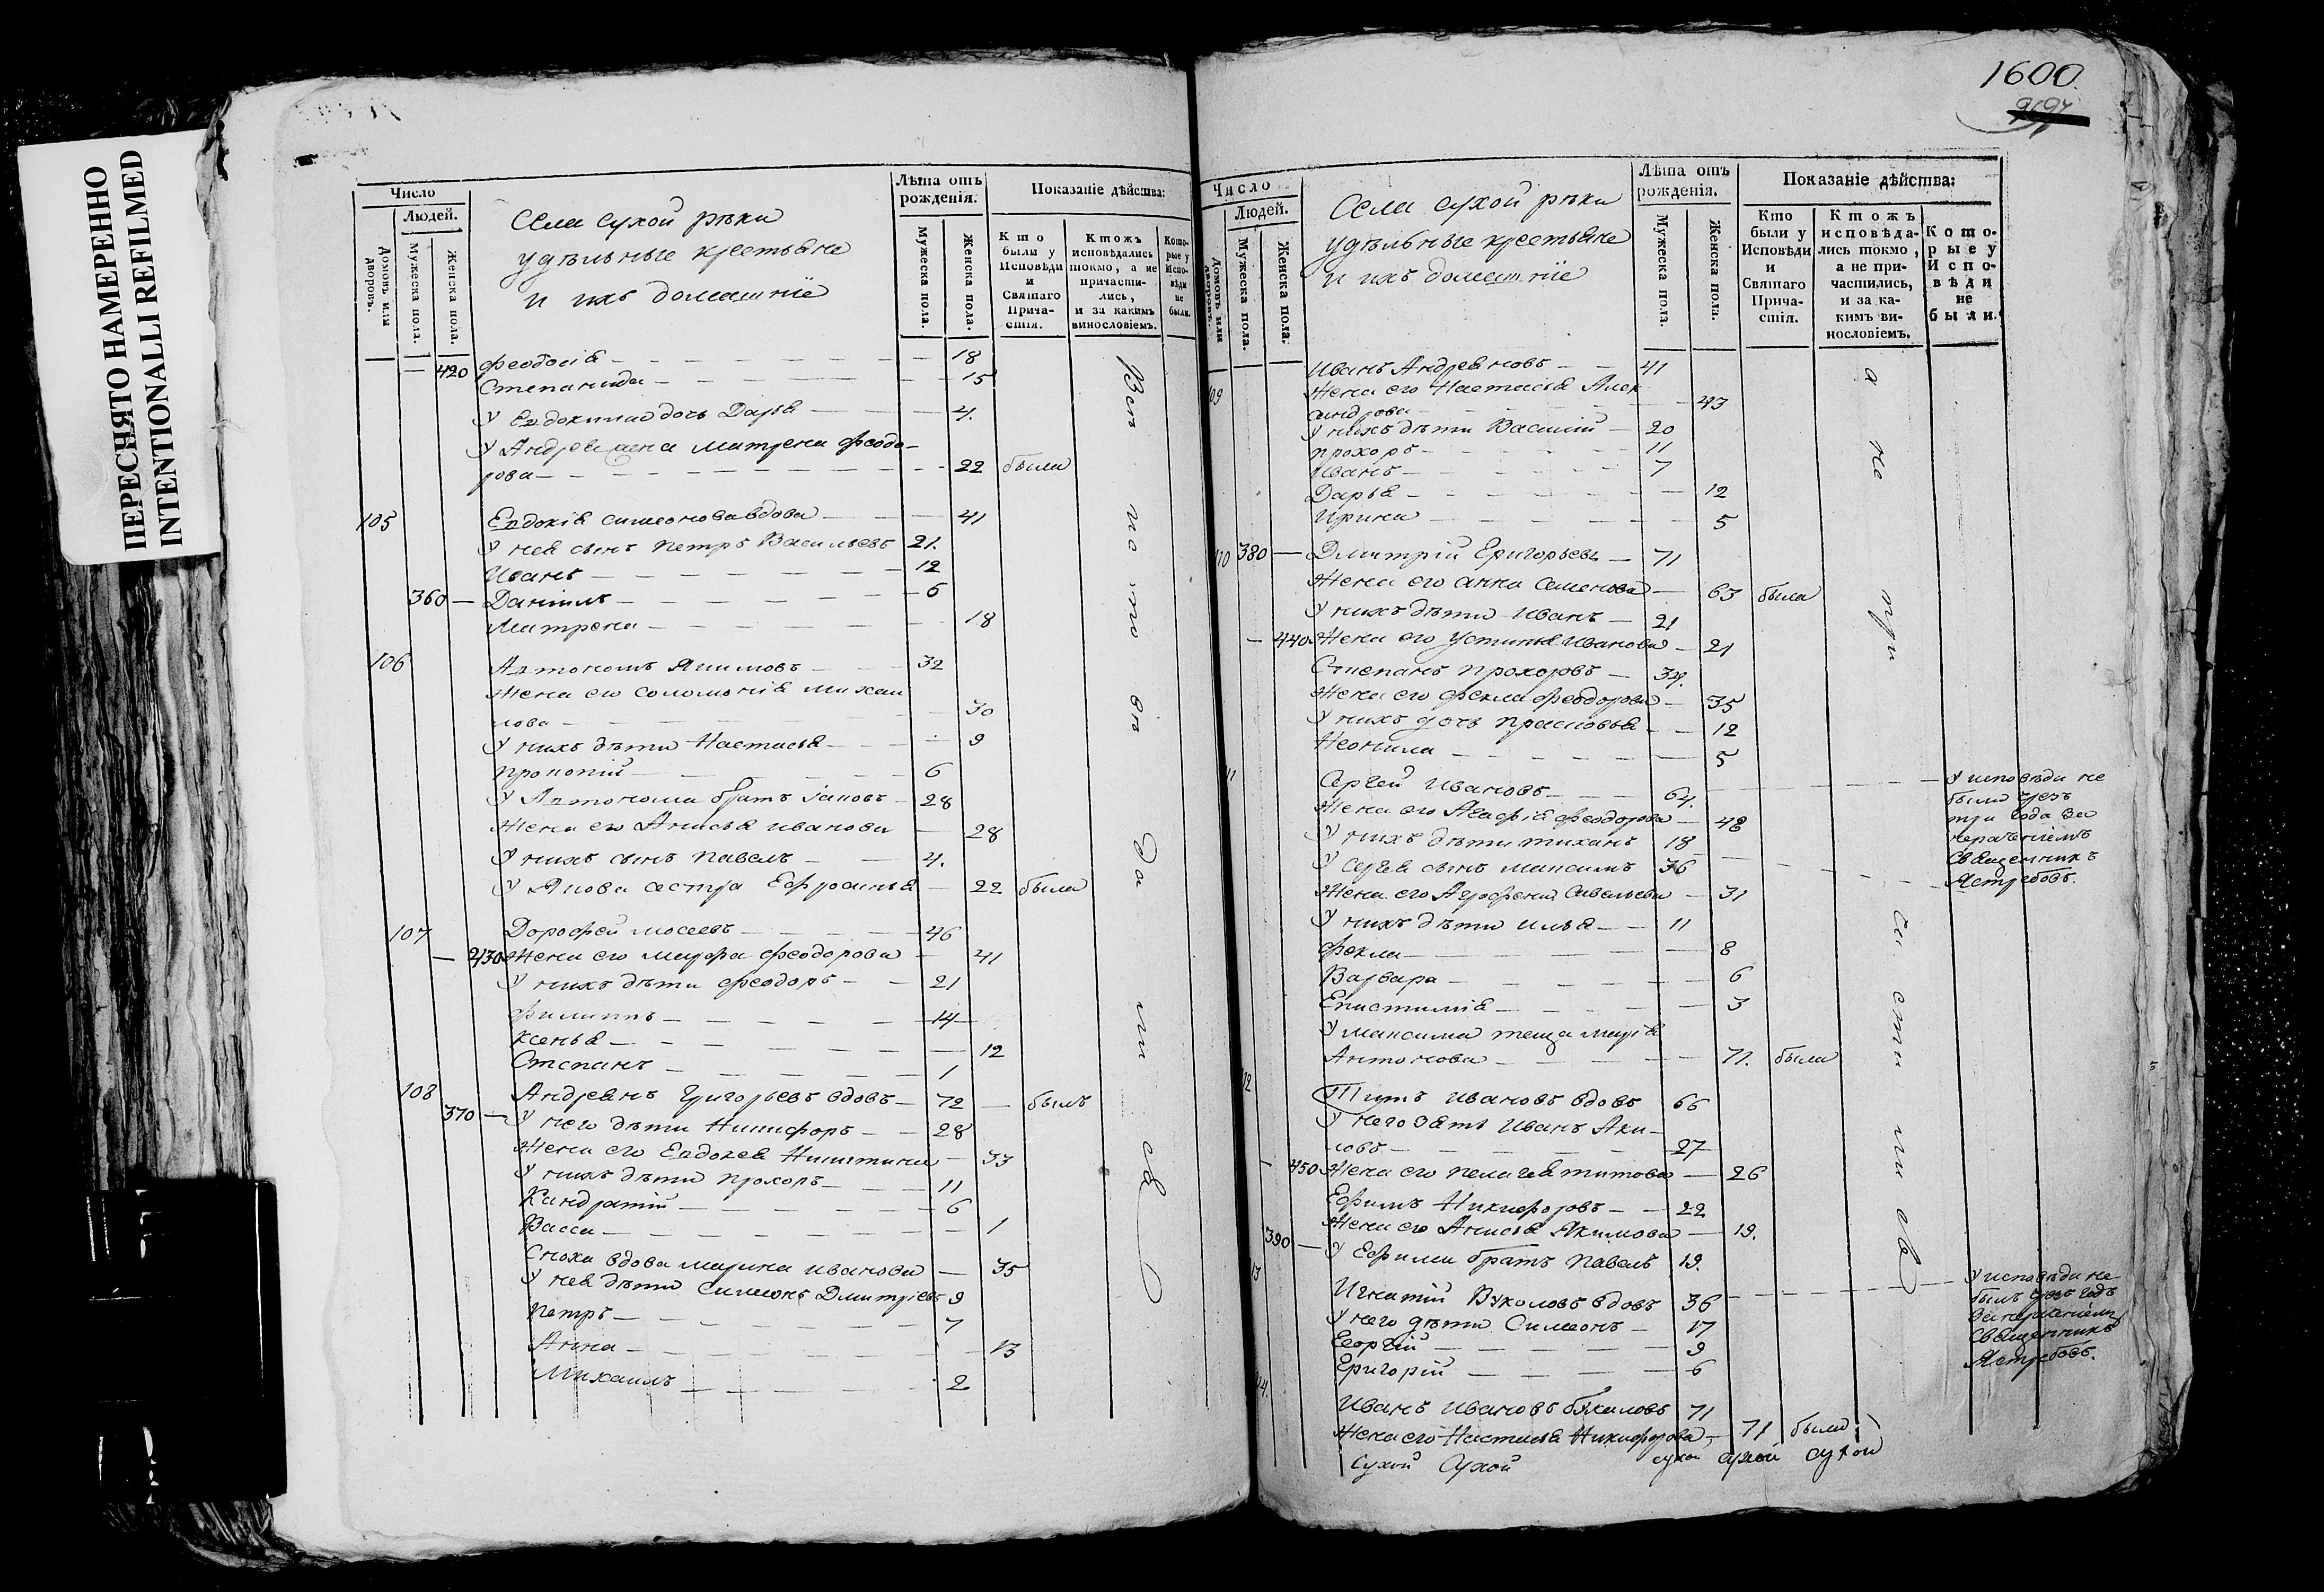 ПЕРЕСНЯТО НАМЕРЕННО
INTENTIONALLI REFILMED
Число
Людей.
Домовъ или дворовъ.
Мужеска пола.
Женска пола.
Села сухой рѣки
удѣльные крестьяне
и ихъ домашніе
Лѣта отъ рожденія.
Мужеска пола.
Женска пола.
Показаніе дѣйства:
Кто были у Исповѣди и Святаго Причастія.
Ктожъ исповѣдались токмо, а не причастились, и за какимъ винословіемъ.
Которые у Исповѣди не были.
— 420 Феодосія — 18
Степанида — 15
У Евдокима дочь Дарья — 4.
У Андрея жена Матрена Феодо-
рова — 22 была
105 Евдокія Симеонова вдова — 41
У нея сынъ Петръ Васильевъ 21.
Иванъ — 12
360 — Даніилъ — 6
Матрена — 18
106 Автономъ Якимовъ — 32
Жена его Соломонія Михаи
лова — 30
У нихъ дѣти Настасья — 9
Прокопій — 6
У Автонома братъ Іаковъ — 28
Жена его Анисья Иванова — 28
У нихъ сынъ Павелъ — 4.
У Якова сестра Ефросинья — 22 была
107 Дорофей Мосеевъ — 46
— 430 Жена его Марфа Феодорова — 41
У нихъ дѣти Феодоръ — 21
Филиппъ — 14
Ксенья — 12
Степанъ — 1
108 Андреянъ Григорьевъ вдовъ — 72 — былъ
370 — У него дѣти Никифоръ — 28
Жена его Евдокея Никитина — 33
У нихъ дѣти Прохоръ — 11
Кандратій — 6
Васса — 1
Сноха вдова Марина Иванова — 35
У нея дѣти Симеонъ Дмитріевъ 9
Петръ — 7
Анна — 13
Михаилъ — 2
1600.
Число
Людей.
Домовъ или дворовъ.
Мужеска пола.
Женска пола.
Села сухой рѣки
удѣльные крестьяне
и ихъ домашніе
Лѣта отъ рожденія.
Мужеска пола.
Женска пола.
Показаніе дѣйства:
Кто были у Исповѣди и Святаго Причастія.
Ктожъ исповѣдались токмо, а не причастились, и за какимъ винословіемъ.
Которые у Исповѣди не были.
109 Иванъ Андреяновъ — 41
Жена его Настасья Алек
сандрова — 43
У нихъ дѣти Василій — 20
Прохоръ — 11
Иванъ — 7
Дарья — 12
Ирина — 5
110 380 — Дмитрій Григорьевъ — 71
Жена его Анна Семенова — 63 была
У нихъ дѣти Иванъ — 21
— 440 Жена его Устинья Иванова — 21
Степанъ Прохоровъ — 39.
Жена его Фекла Феодорова — 35
У нихъ дочь Прасковья — 12
Неонила — 5
11 Сергей Ивановъ — 64. — У исповѣди не
были чрезъ
три года за
нерачениемъ
Священникъ
Ястребовъ.
Жена его Агафія Феодорова — 48
У нихъ дѣти Тиханъ 18
У Сергея сынъ Максимъ 36
Жена его Аграфена Савельева — 31
У нихъ дѣти Илья — 11
Фекла — 8
Варвара — 6
Епистимія — 3
У Максима теща Марья
Антонова — 71. была
12 Титъ Ивановъ вдовъ 66
У него зять Иванъ Аки-
мовъ — 27
— 450 Жена его Пелагея Титова — 26
Ефимъ Никифоровъ — 22
Жена его Анисья Якимова — 19.
390 — У Ефима братъ Павелъ 19.
13 Игнатій Вуколовъ вдовъ 36 — У исповѣди не
былъ чрезъ годъ
за нерачениемъ
Священникъ
Ястребовъ.
У него дѣти Симеонъ — 17
Георгій — 9
Григорій — 6
14. Иванъ Ивановъ 71
Жена его Настасья Никифорова — 71 были
Сухой Сухой сухой сухой сухой